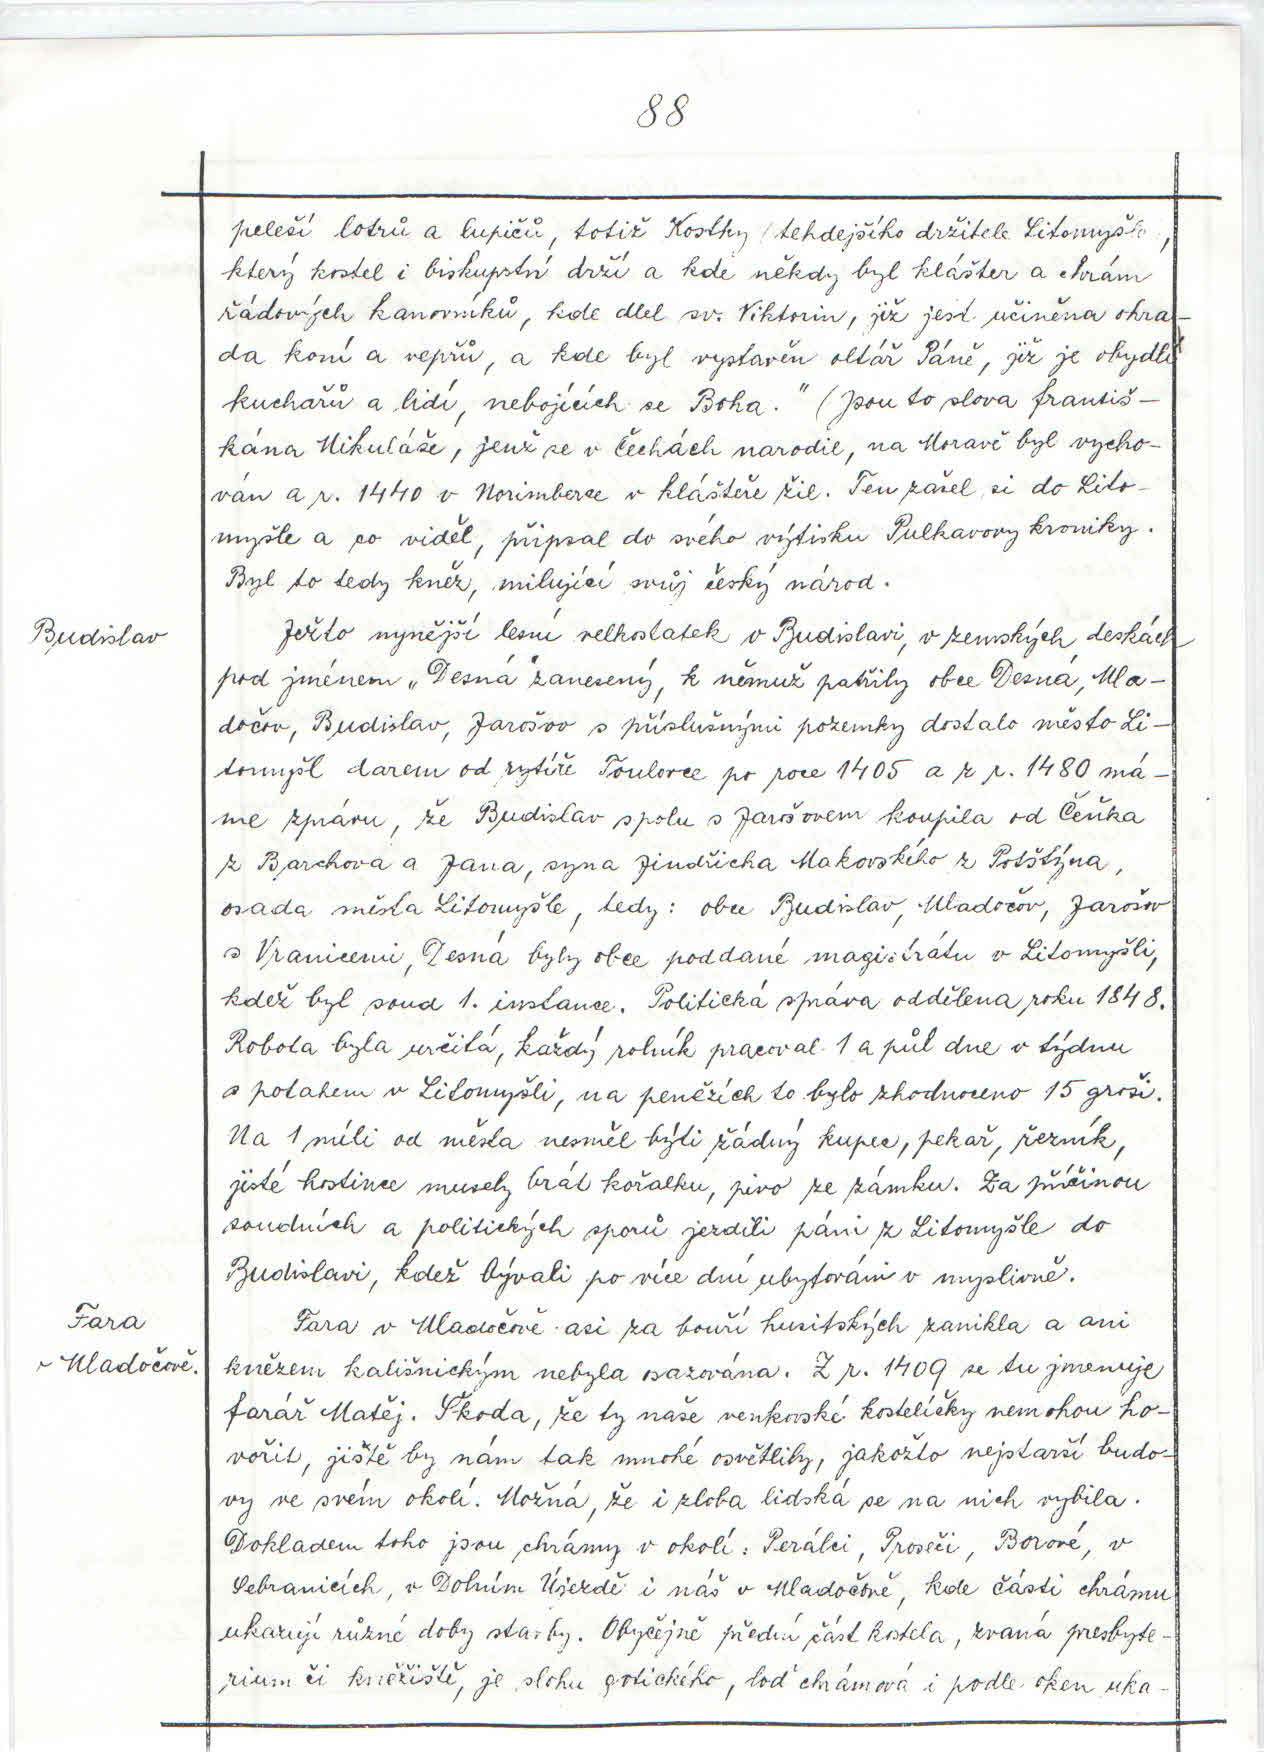 88
peleší lotrů a lupičů, totiž Kostky (tehdejšího držitele Litomyšle,
který kostel i biskupství drží a kde někdy byl klášter a chrám
řádových kanovníků, kde dlel sv. Viktorin, již jest učiněna ohra-
da koní a vepřů, a kde byl vystavěn oltář Páně, již je obydlí
kuchařů a lidí, nebojících se Boha." (Jsou to slova františ-
kána Mikuláše, jenž se v Čechách narodil, na Moravě byl vycho-
ván a r. 1440 v Norimberce v klášteře žil. Ten zašel si do Lito-
myšle a co viděl, připsal do svého výtisku Pulkavovy kroniky.
Byl to tedy kněz, milující svůj český národ.
Budislav
Ježto nynější lesní velkostatek v Budislavi, v zemských deskách
pod jménem „Desná" zanesený, k němuž patřily obce Desná, Mla-
dočov, Budislav, Jarošov s příslušnými pozemky dostalo město Li-
tomyšl darem od rytíře Toulovce po roce 1405 a z r. 1480 má-
me zprávu, že Budislav spolu s Jarošovem koupila od Čeňka
z Barchova a Jana, syna Jindřicha Makovského z Potštýna,
osada města Litomyšle, tedy: obce Budislav, Mladočov, Jarošov
s Vranicemi, Desná byly obce poddané magistrátu v Litomyšli,
kdež byl soud 1. instance. Politická správa oddělena roku 1848.
Robota byla určitá, každý rolník pracoval 1 a půl dne v týdnu
s potahem v Litomyšli, na penězích to bylo zhodnoceno 15 groši.
Na 1 míli od města nesměl býti žádný kupec, pekař, řezník,
jisté hostince musely brát kořalku, pivo ze zámku. Za příčinou
soudních a politických sporů jezdili páni z Litomyšle do
Budislavi, kdež bývali po více dní ubytováni v myslivně.
Fara
v Mladočově.
Fara v Mladočově asi za bouří husitských zanikla a ani
knězem kališnickým nebyla osazována. Z r. 1409 se tu jmenuje
farář Matěj. Škoda, že ty naše venkovské kostelíčky nemohou ho-
vořit, jistě by nám tak mnohé osvětlily, jakožto nejstarší budo-
vy ve svém okolí. Možná, že i zloba lidská se na nich vybila.
Dokladem toho jsou chrámy v okolí: Perálci, Proseči, Borové, v
Sebranicích, v Dolním Újezdě i náš v Mladočově, kde části chrámu
ukazují různé doby stavby. Obyčejně přední část kostela, zvaná presbyte-
rium či kněžiště, je slohu gotického, loď chrámová i podle oken uka-